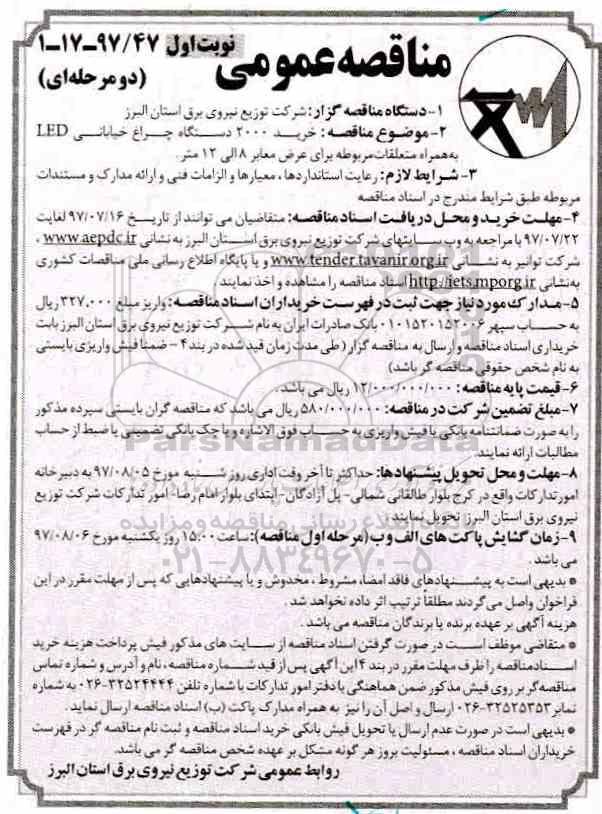 نوبت اول ۹۷/۴۷-۱۷-۱
مناقصه عمومی
(دو مرحله‌ای)
۱-دستگاه مناقصه گزار: شرکت توزیع نیروی برق استان البرز
۲-موضوع مناقصه: خرید ۲۰۰۰ دستگاه چراغ خیابانی LED
به‌همراه متعلقات مربوطه برای عرض معابر ۸ الی ۱۲ متر.
۳-شرایط لازم: رعایت استانداردها، معیارها و الزامات فنی و ارائه مدارک و مستندات
مربوطه طبق شرایط مندرج در اسناد مناقصه
۴-مهلت خرید و محل دریافت اسناد مناقصه: متقاضیان می توانند از تاریخ ۹۷/۰۷/۱۶ لغایت
۹۷/۰۷/۲۲ با مراجعه به وب سایتهای شرکت توزیع نیروی برق استان البرز به نشانی www.aepdc.ir ،
شرکت توانیر به نشانی www.tender.tavanir.org.ir و یا پایگاه اطلاع رسانی ملی مناقصات کشوری
به‌نشانی http://iets.mporg.ir اسناد مناقصه را مشاهده و اخذ نمایند.
۵-مدارک مورد نیاز جهت ثبت در فهرست خریداران اسناد مناقصه: واریز مبلغ ۳۲۷،۰۰۰ ریال
به حساب سپهر ۰۱۰۱۵۲۰۱۵۲۰۰۶ بانک صادرات ایران به نام شرکت توزیع نیروی برق استان البرز بابت
خریداری اسناد مناقصه و ارسال به مناقصه گزار (طی مدت زمان قید شده در بند ۴ - ضمنا فیش واریزی بایستی
به نام شخص حقوقی مناقصه گر باشد)
۶-قیمت پایه مناقصه: ۱۲/۰۰۰/۰۰۰/۰۰۰ ریال می باشد.
۷-مبلغ تضمین شرکت در مناقصه: ۵۸۰/۰۰۰/۰۰۰ ریال می باشد که مناقصه گران بایستی سپرده مذکور
را به صورت ضمانتنامه بانکی یا فیش واریزی به حساب فوق الاشاره و یا چک بانکی تضمینی یا ضبط از حساب
مطالبات ارائه نمایند.
۸-مهلت و محل تحویل پیشنهادها: حداکثر تا آخر وقت اداری روز شنبه مورخ ۹۷/۰۸/۰۵ به دبیرخانه
امور تدارکات واقع در کرج بلوار طالقانی شمالی- پل آزادگان- ابتدای بلوار امام رضا- امور تدارکات شرکت توزیع
نیروی برق استان البرز تحویل نمایند.
۹-زمان گشایش پاکت های الف و ب (مرحله اول مناقصه): ساعت ۱۵:۰۰ روز یکشنبه مورخ ۹۷/۰۸/۰۶
می باشد.
* بدیهی است به پیشنهادهای فاقد امضا، مشروط، مخدوش و یا پیشنهادهایی که پس از مهلت مقرر در این
فراخوان واصل می گردند مطلقاً ترتیب اثر داده نخواهد شد.
هزینه آگهی بر عهده برنده یا برندگان مناقصه می باشد.
* متقاضی موظف است در صورت گرفتن اسناد مناقصه از سایت های مذکور فیش پرداخت هزینه خرید
اسناد مناقصه را ظرف مهلت مقرر در بند ۴ این آگهی پس از قید شماره مناقصه، نام و آدرس و شماره تماس
مناقصه‌گر بر روی فیش مذکور ضمن هماهنگی با دفتر امور تدارکات با شماره تلفن ۳۲۵۲۴۴۴۴-۰۲۶ به شماره
نمابر ۳۲۵۲۵۳۵۳-۰۲۶ ارسال و اصل آن را نیز به همراه مدارک پاکت (ب) اسناد مناقصه ارسال نماید.
* بدیهی است در صورت عدم ارسال یا تحویل فیش بانکی خرید اسناد مناقصه و ثبت نام مناقصه گر در فهرست
خریداران اسناد مناقصه، مسئولیت بروز هر گونه مشکل بر عهده شخص مناقصه گر می باشد.
روابط عمومی شرکت توزیع نیروی برق استان البرز
ParsNamadData
۰۲۱-۸۸۳۴۹۶۷۰-۵